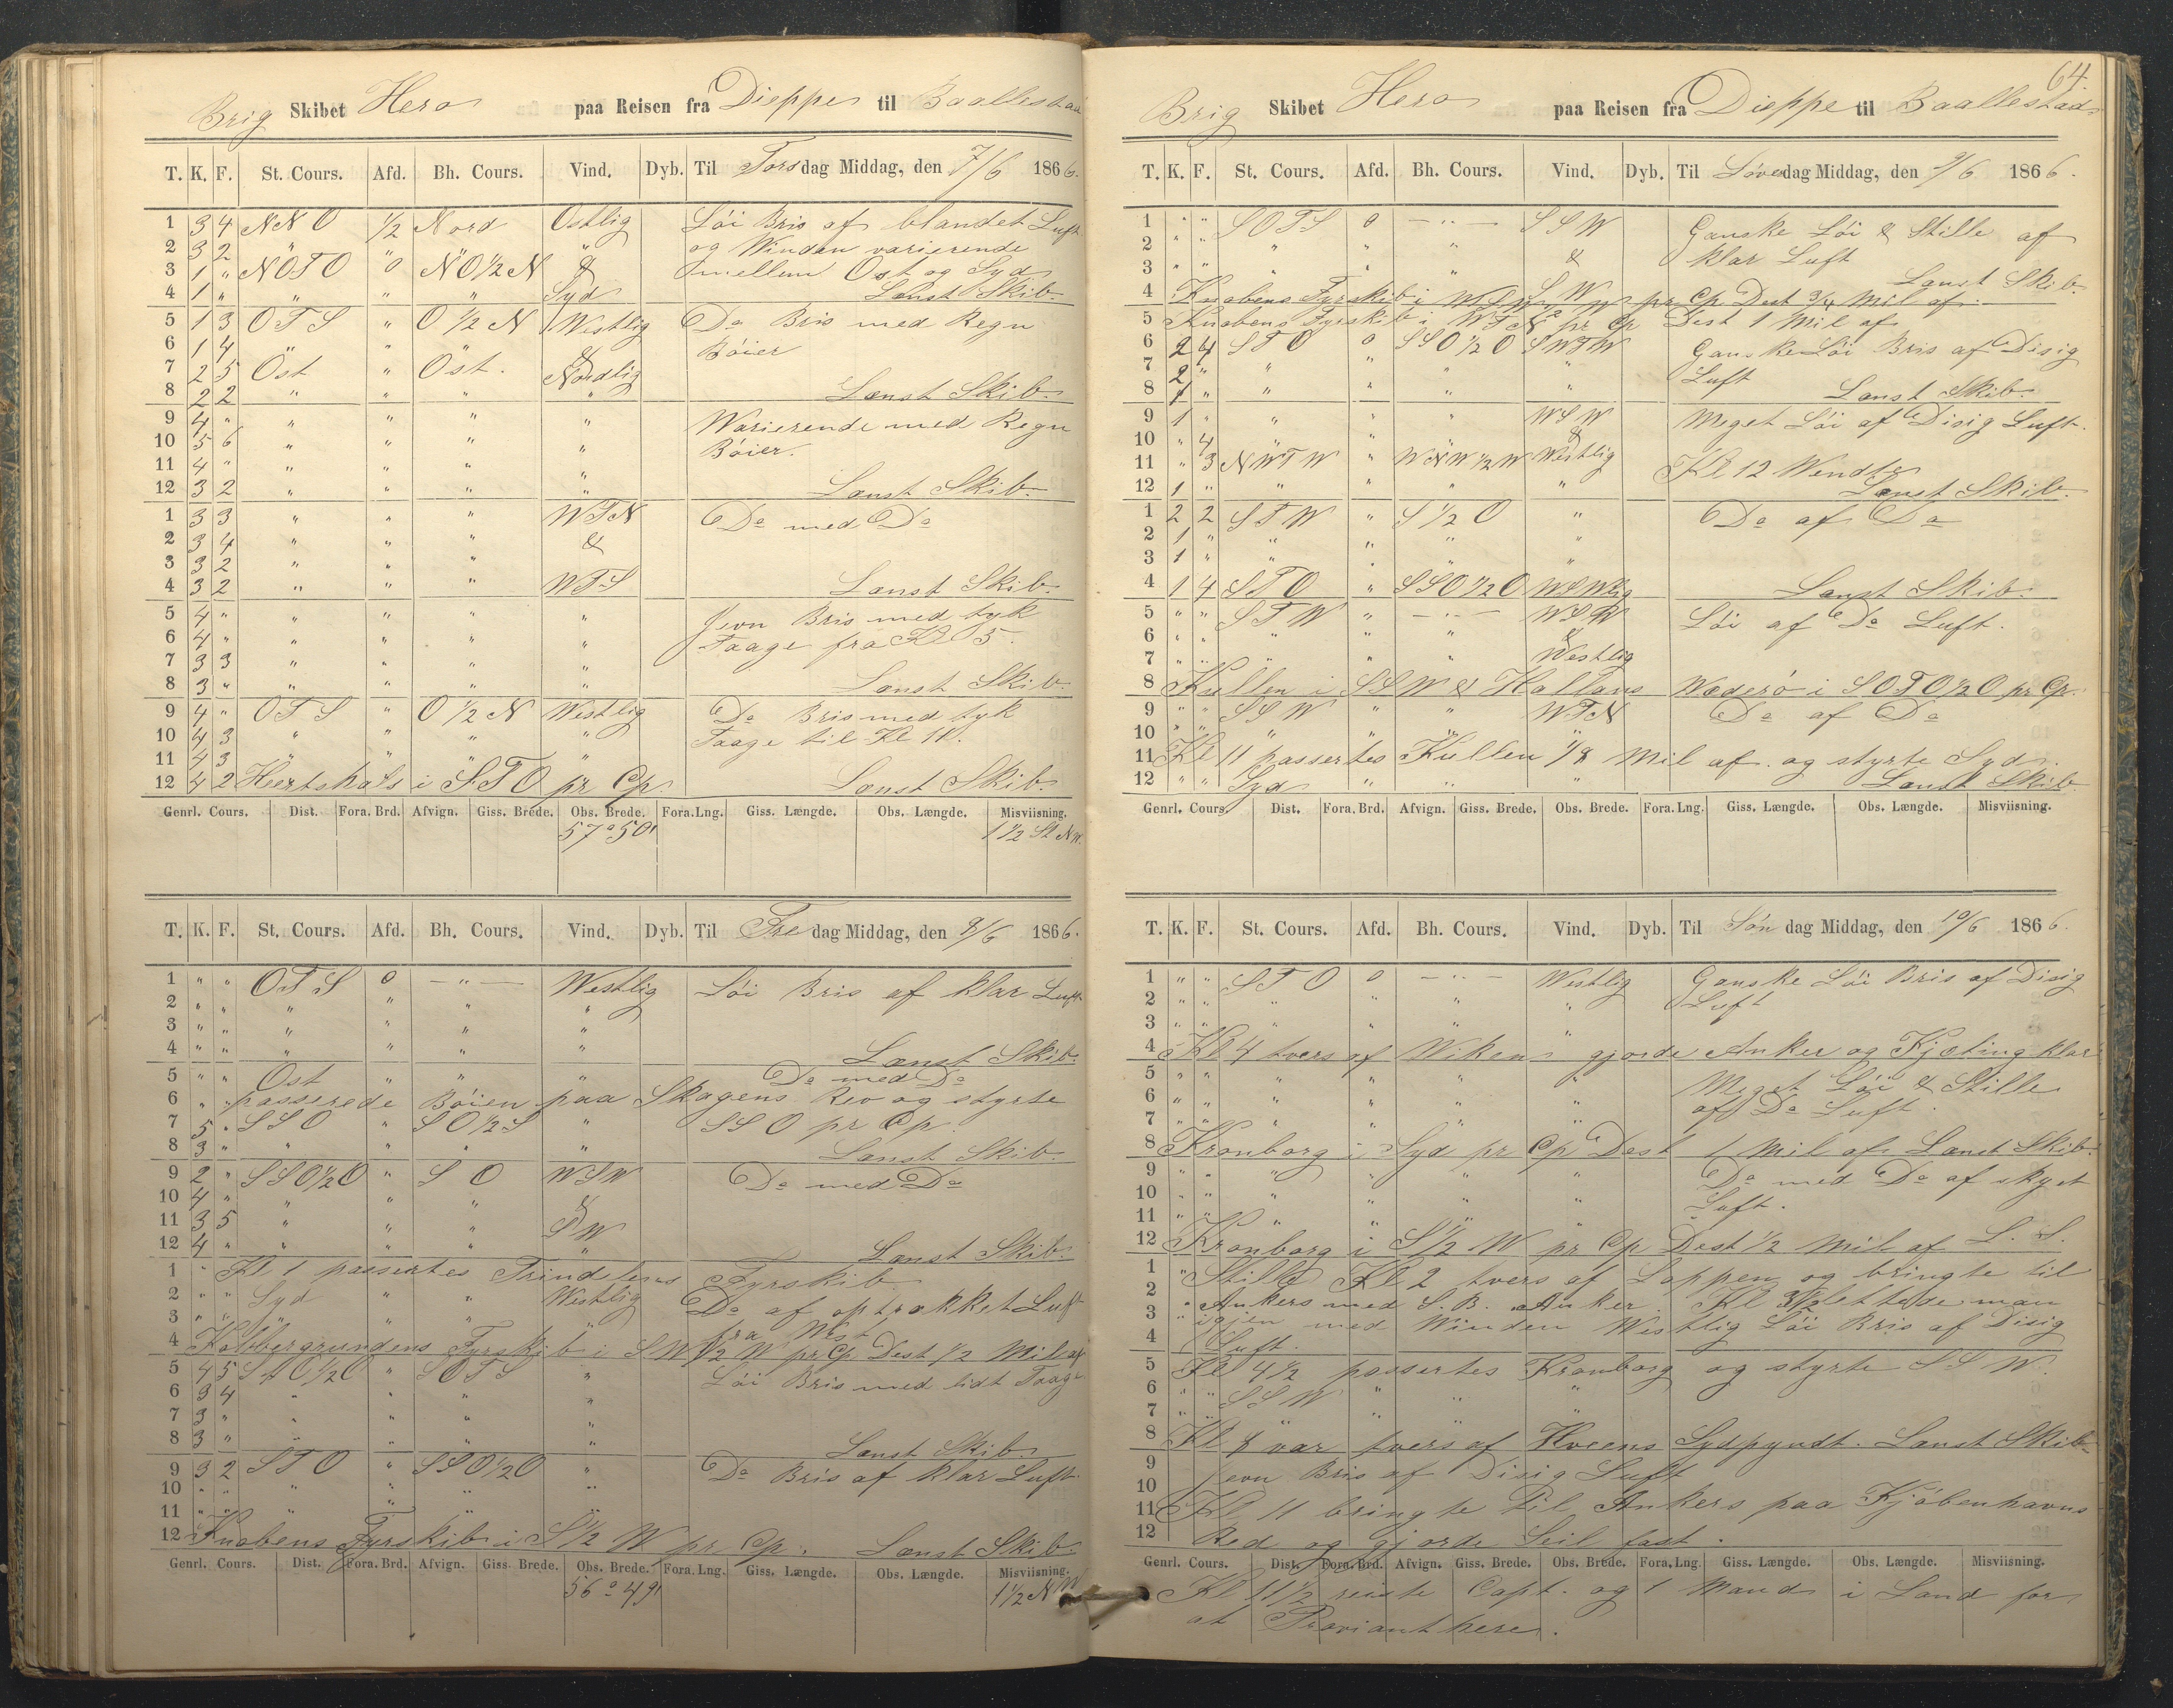 Brig Skibet Hero paa Reisen fra Dieppe til Baallestad
T. K. F. St. Cours. Afd. Bh. Cours. Vind. Dyb. Til Torsdag Middag, den 7/6 1866.
1 3 4 NNO 1/2 Nord Ostlig Löi Bris af blandet Luft
2 3 2 " " " " og Winden varierende
3 1 " NOTO 0 NO1/2N & mellem Ost og Syd
4 1 " " " " Syd Lænst Skib.
5 1 3 OTS " O 1/2 N Westlig Do Bris med Regn
6 1 4 " " " & Böier
7 2 5 Ost " Ost. Nordlig
8 2 2 " " " " Lænst Skib
9 4 " " " " " Warierende med Regn
10 5 6 " " " " Böier.
11 4 " " " " "
12 3 2 " " " " Lænst Skib
1 3 3 " " " WTN Do med Do
2 3 4 " " " &
3 3 2 " " "
4 3 2 " " " WTS Lænst Skib
5 4 " " " " " Jevn Bris med tyk
6 4 " " " " " Taage fra Kl 5.
7 3 3 " " " "
8 3 " " " " Lænst Skib
9 4 " OTS " O 1/2 N Westlig Do Bris med tyk
10 4 3 " " " " Taage til Kl 11.
11 4 3 " " " "
12 4 2 Heertshals i STO pr Cp. Lænst Skib
Genrl. Cours. Dist. Fora. Brd. Afvign. Giss. Brede. Obs. Brede. Fora.Lng. Giss. Længde. Obs. Længde. Misviisning.
57°50' 1 1/2 St NW.
T. K. F. St. Cours. Afd. Bh. Cours. Vind. Dyb. Til Fredag Middag, den 8/6 1866.
1 " " OTS 0 — " — Westlig Löi Bris af klar Luft
2 " " " " " "
3 " " " " " "
4 " " " " " " Lænst Skib
5 " " Ost " " " Do med Do
6 " " passerede Böien paa Skagens Rev og styrte
7 5 " SSO " SO1/2S " SSO pr Cp.
8 3 " " " " " Lænst Skib
9 2 " SSO1/2O " SO WSW Do med Do
10 4 " " " " &
11 3 5 " " " SW
12 4 " " " " " Lænst Skib
1 " Kl 1 passertes Trindelens Fyrskib
2 " " Syd " " Westlig Do af optrækket Luft
3 " " " " " " fra West
4 Kobbergrundens Fyrskib i SW1/2W pr Cp Dest 1/2 Mil af
5 4 5 SSO1/2O " SOTS " Löi Bris med lidt Taage
6 3 4 " " " "
7 3 " " " " "
8 3 " " " " " Lænst Skib
9 3 2 STO " SSO1/2O " Do Bris af klar Luft
10 " " " " " "
11 " " " " " "
12 Knobens Fyrskib i S1/2W pr Cp. Lænst Skib
Genrl. Cours. Dist. Fora. Brd. Afvign. Giss. Brede. Obs. Brede. Fora.Lng. Giss. Længde. Obs. Længde. Misviisning.
56°49' 1 1/2 NW
64.
Brig Skibet Hero paa Reisen fra Dieppe til Baallestad
T. K. F. St. Cours. Afd. Bh. Cours. Vind. Dyb. Til Löverdag Middag, den 9/6 1866.
1 " " SOTS 0 — " — SSW Ganske Löi & Stille af
2 " " " " " klar Luft
3 " " " " " & Lænst Skib
4 Knobens Fyrskib i pr Cp Dest 3/4 Mil af.
5 Knobens Fyrskib i WTN pr Cp Dest 1 Mil af
6 2 4 STO 0 SSO1/2O SWTW Ganske Löi Bris af Disig
7 2 " " " " " Luft
8 1 " " " " " Lænst Skib
9 1 " " " " WSW Meget Löi af Disig Luft.
10 " 4 " " " &
11 " 3 NWTW " WNW1/2W Westlig Kl 12 Wendte
12 1 " " " " " Lænst Skib
1 2 2 STW " S1/2O " Do af Do
2 1 " " " " "
3 1 " " " "
4 1 4 STO " SSO1/2O WSWlig Lænst Skib
5 " " STW " — " — WSW Löi af Do Luft.
6 " " " " " &
7 " " " " " Westlig
8 Kullen i SSW & Hallans Wæderö i SOTO1/2O pr Cp.
9 " " SSW " " WTN Do af Do
10 " " " " " "
11 Kl 11 passertes Kullen 1/8 Mil af og styrte Syd.
12 " " Syd " " Lænst Skib
Genrl. Cours. Dist. Fora. Brd. Afvign. Giss. Brede. Obs. Brede. Fora.Lng. Giss. Længde. Obs. Længde. Misviisning.
T. K. F. St. Cours. Afd. Bh. Cours. Vind. Dyb. Til Söndag Middag, den 10/6 1866.
1 " " STO 0 — " — Westlig Ganske Löi Bris af Disig
2 " " " " " " Luft
3 " " " " " "
4 Kl 4 tvers af Wiken gjorde Anker og Kjæting klar
5 " " " " " " Meget Löi & Stille
6 " " " " " " af Do Luft.
7 " " " " " "
8 Kronborg i Syd pr Cp Dest 1 Mil af Lænst Skib.
9 " " " " " " Do med Do af skyet
10 " " " " " " Luft.
11 " " " " " "
12 Kronborg i S1/2W pr Cp Dest 1/2 Mil af L. S.
1 " Stille Kl 2 tvers af Lappen og bringte til
2 " Ankers med S. B. Anker. Kl 3 1/2 lettede man
3 " igjen med Winden Westlig Löi Bris af Disig
4 Luft.
5 Kl 4 1/2 passertes Kronborg og styrte SSW.
6 " " SSW " " "
7 " " " " " "
8 Kl 8 var tvers af Hveens Sydpyndt. Lænst Skib
9 Jevn Bris af Disig Luft
10
11 Kl 11 bringte til Ankers paa Kjöbenhavns
12 Red og gjorde Seil fast.
Genrl. Cours. Dist. Fora. Brd. Afvign. Giss. Brede. Obs. Brede. Fora.Lng. Giss. Længde. Obs. Længde. Misviisning.
Kl 11 1/2 reiste Capt. og 1 Mand i Land for
at Provianthere.